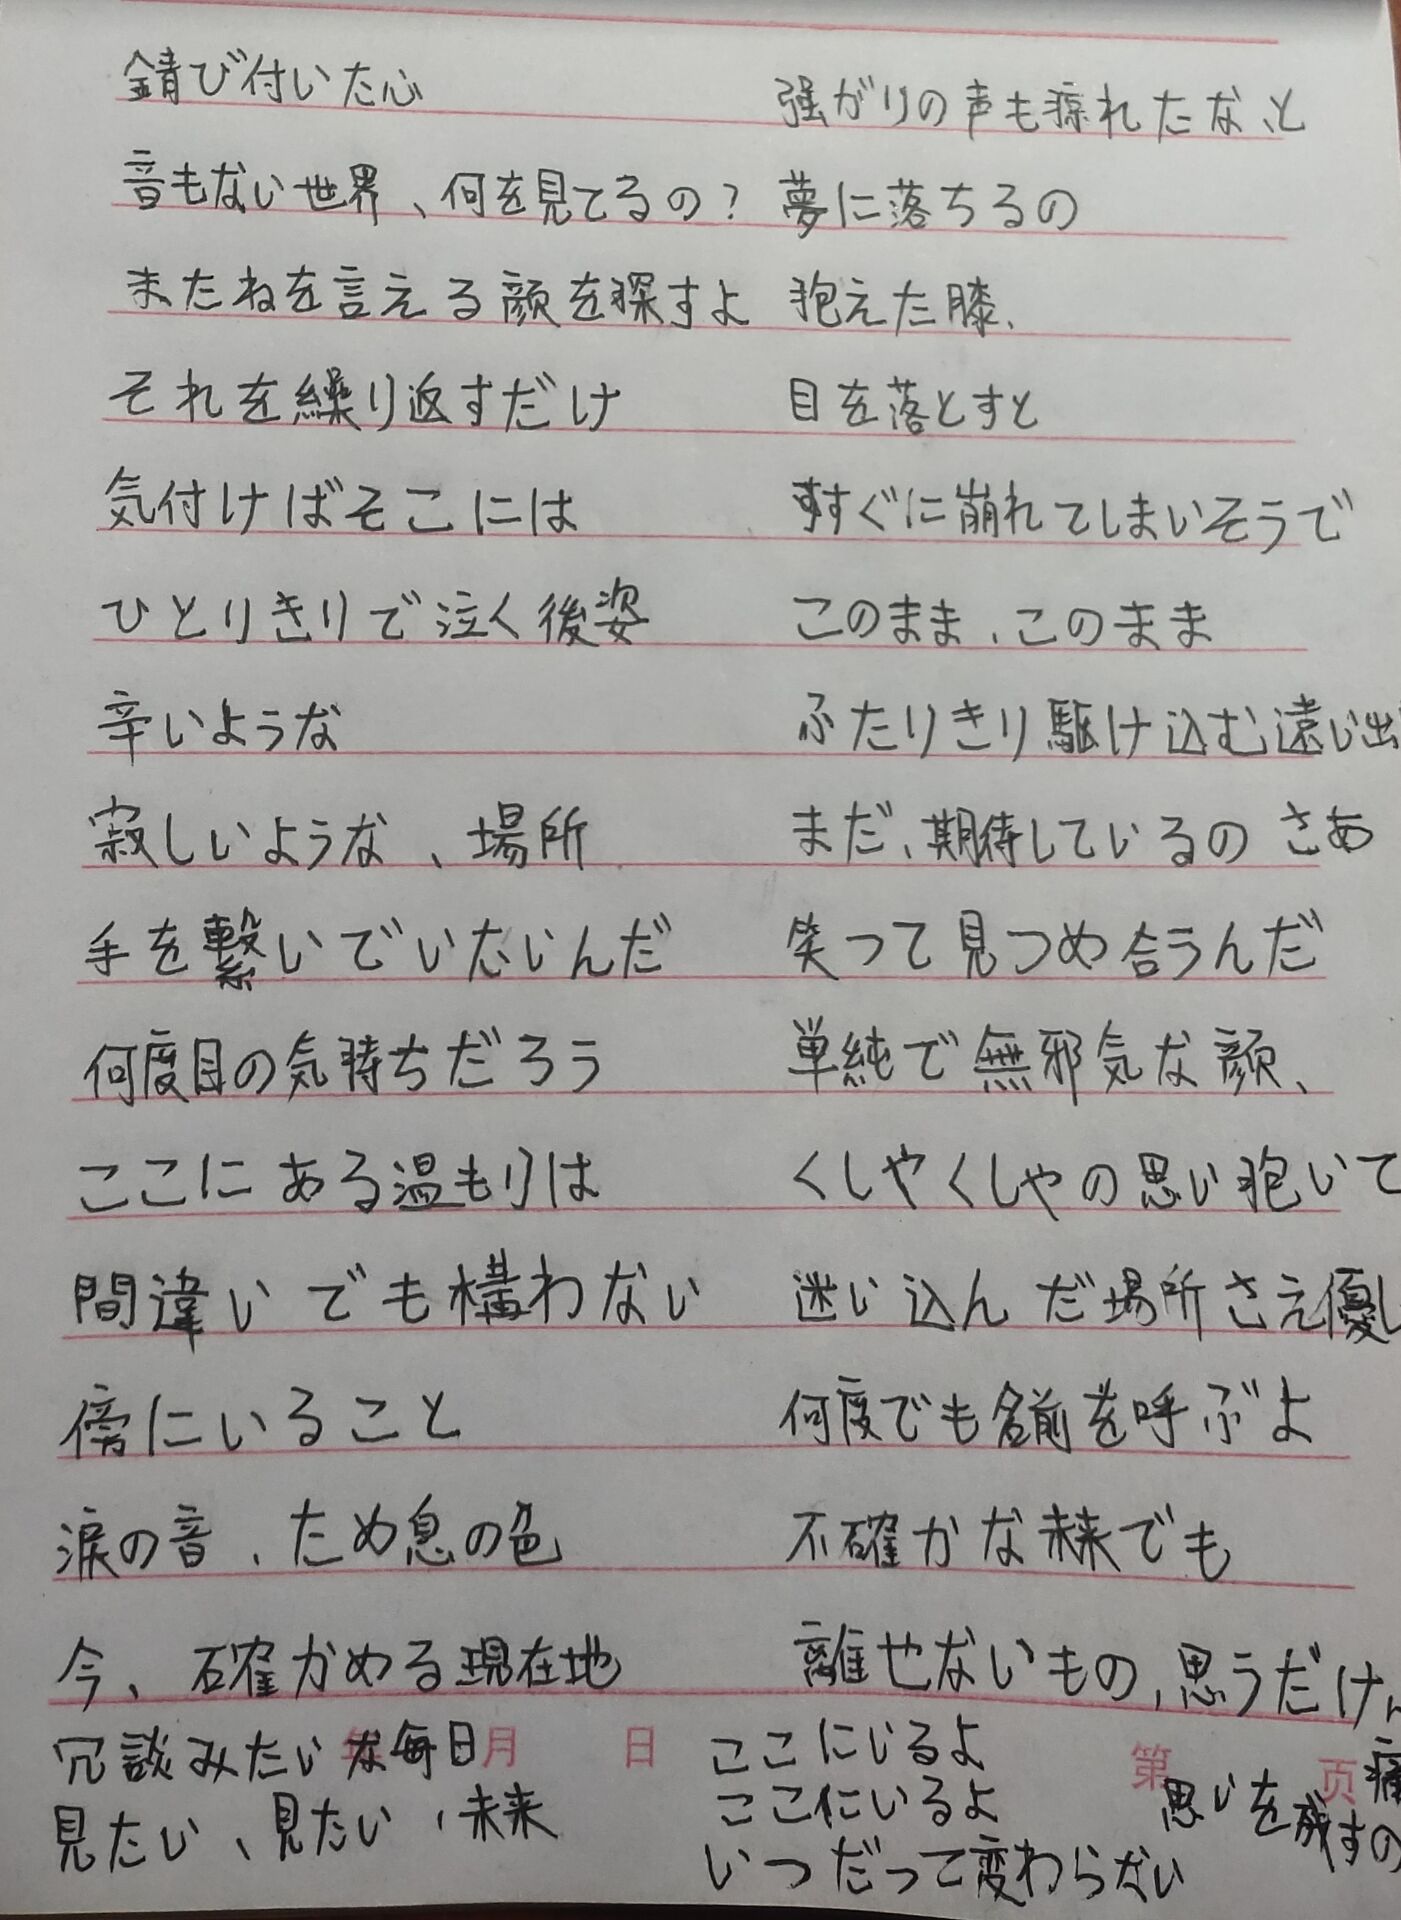 錆び付いた心
音もない世界、何を見てるの?
またねを言える顔を探すよ
それを繰り返すだけ
気付けばそこには
ひとりきりで泣く後姿
辛いような
寂しいような、場所
手を繋いでいたいんだ
何度目の気持ちだろう
ここにある温もりは
間違いでも構わない
傍にいること
涙の音、ため息の色
今、確かめる現在地
冗談みたいな毎日
見たい、見たい、未来
強がりの声も掠れたな、と
夢に落ちるの
抱えた膝、
目を落とすと
すぐに崩れてしまいそうで
このまま、このまま
ふたりきり駆け込む遠い出
まだ、期待しているの さあ
笑って見つめ合うんだ
単純で無邪気な顔、
くしゃくしゃの思い抱いて
迷い込んだ場所さえ優し
何度でも名前を呼ぶよ
不確かな未来でも
離せないもの、思うだけ
ここにいるよ
ここにいるよ
いつだって変わらない
痛
思いを残すの
年 月 日
第 页